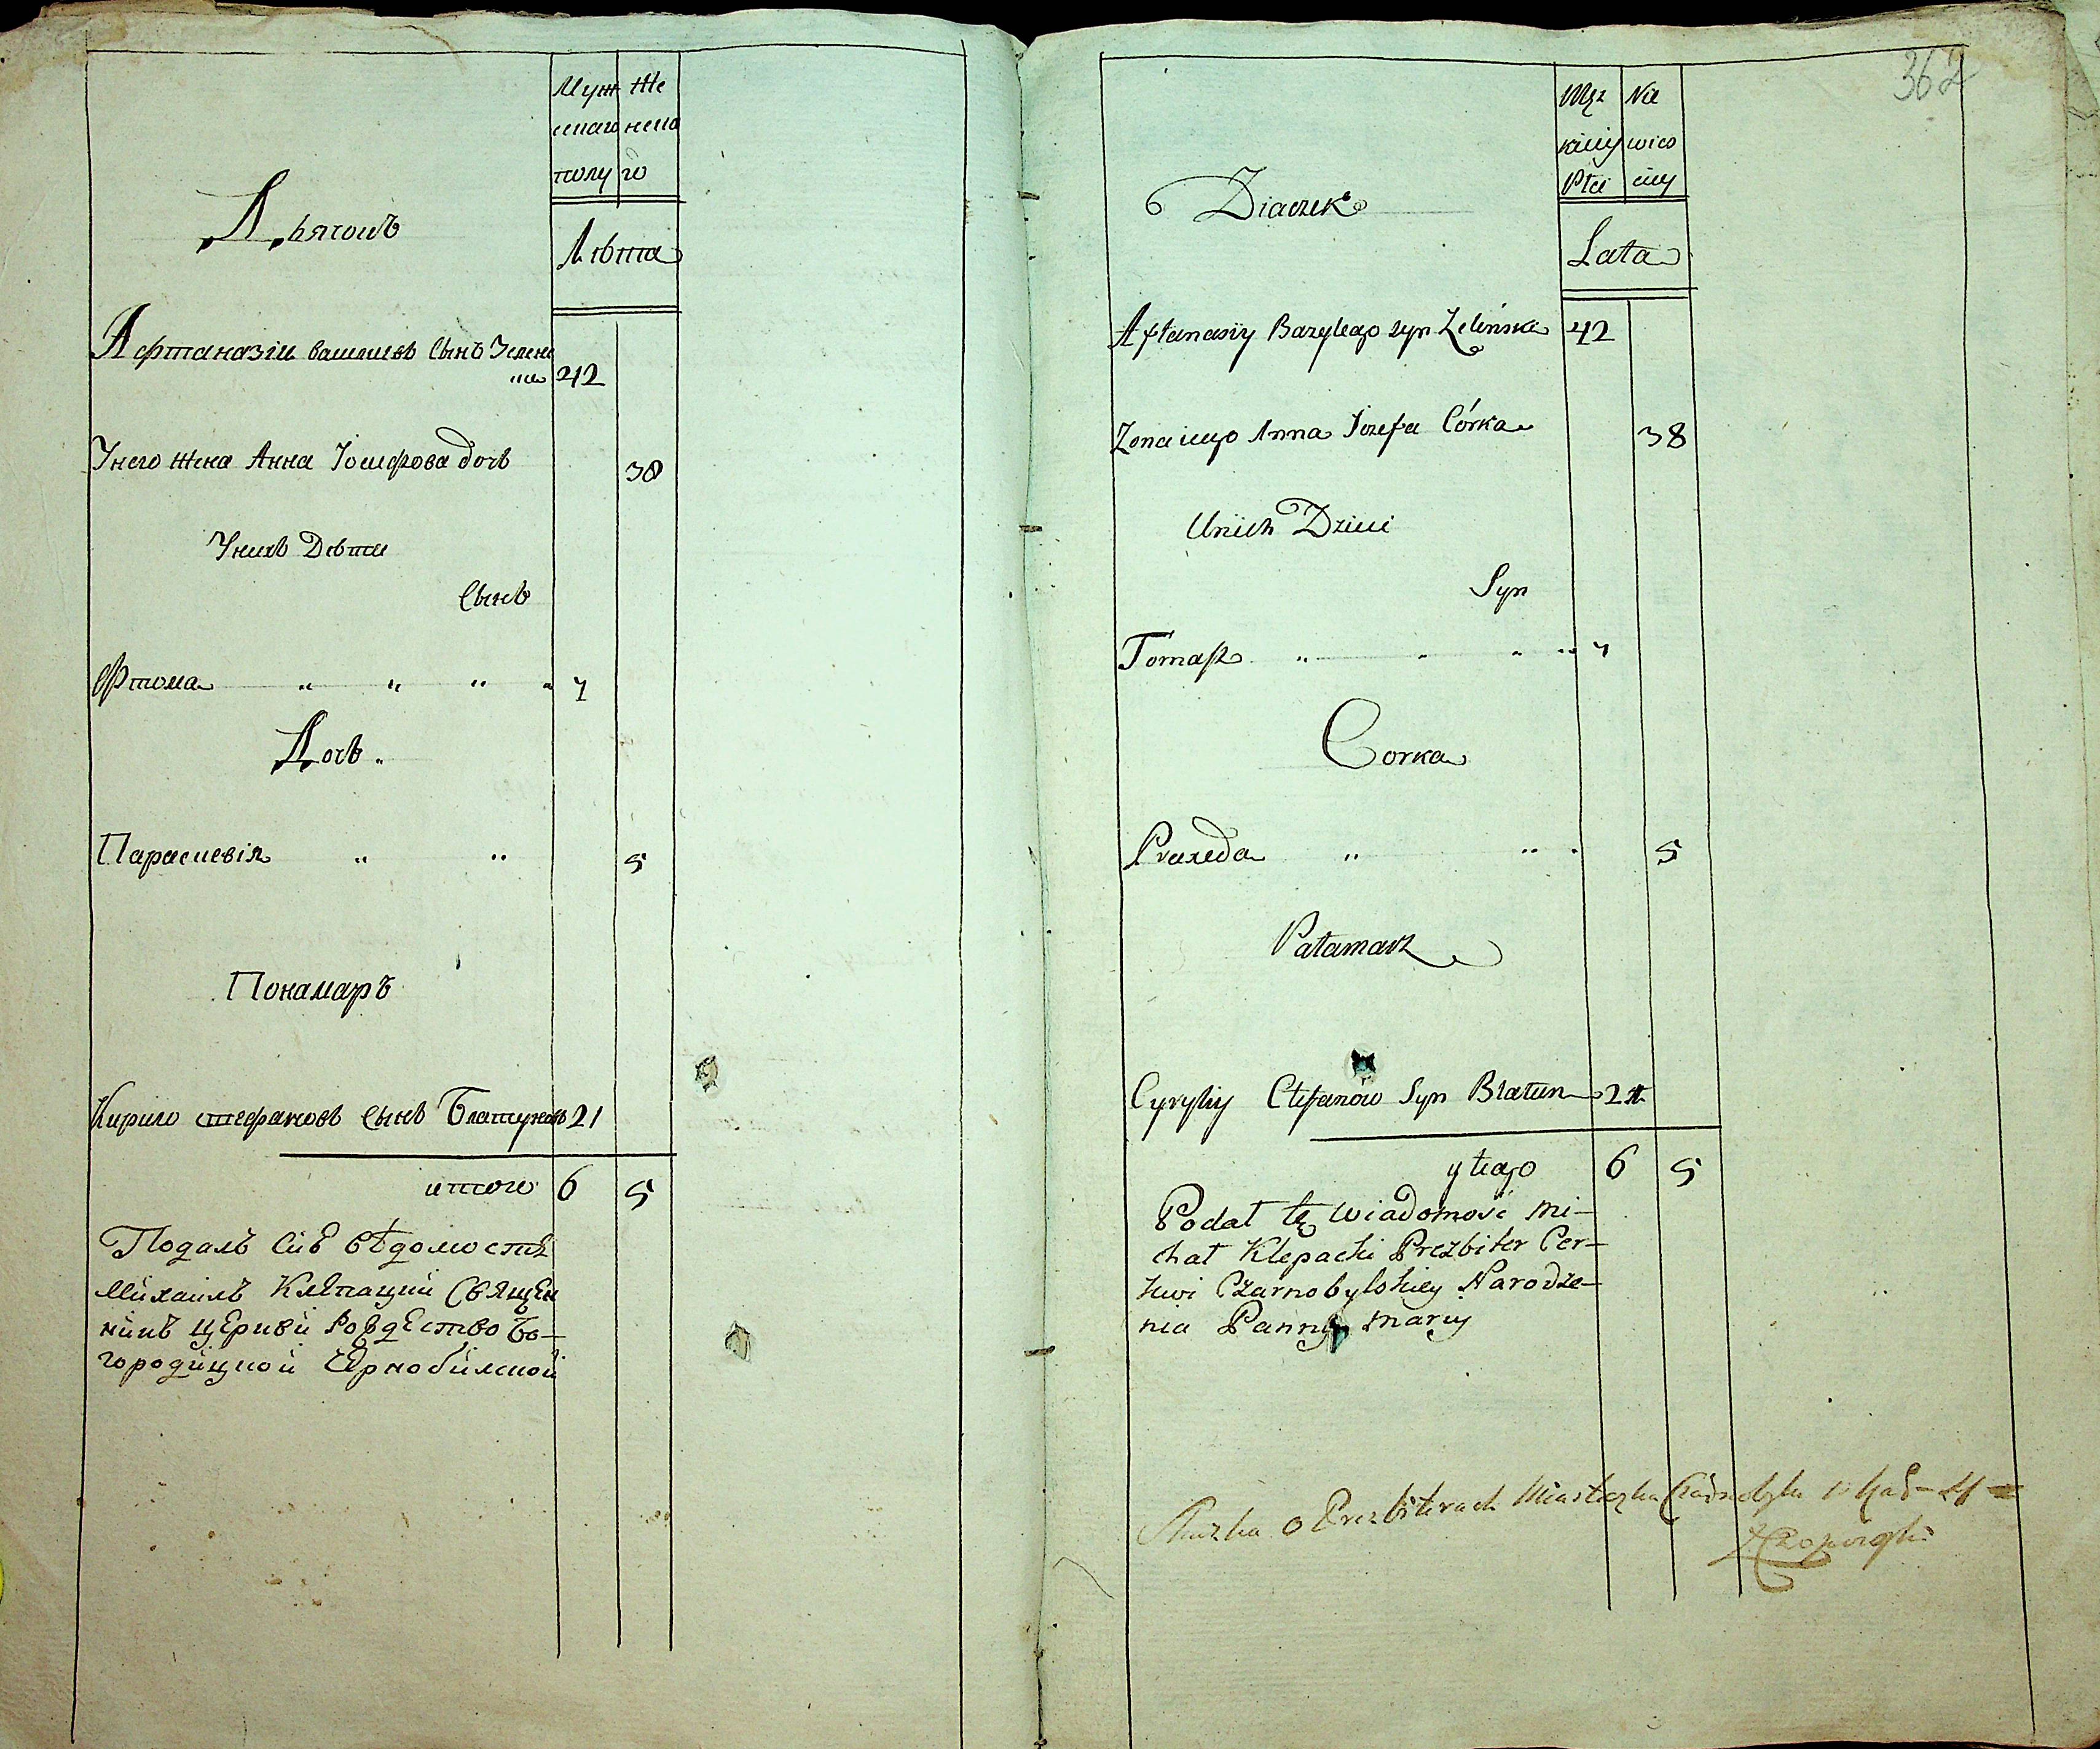 Муж Же
скаго нска
полу го
Дьячокъ
Лѣта
Афтаназіи василиевъ Сынъ Зелен
ски 42
Унего жена Анна Іосифова дочь 38
Унихъ Дѣти
Сынъ
Фтома " " " " 7
Дочь
Параскевія " " 5
Понамаръ
Кирило стефановъ Сынъ Блатунъ 21
итого 6 5
Подалъ Сию вѣдомость
Михаилъ Клѣпацки Священ
никъ церкви Рождество Бо-
городицкой Чернобилской
362
Męz Nie
kiey wieś
Płci ciey
Diaczek
Lata
Aftanasiy Bazylego syn Zelinski 42
Zona iego Anna Jozefa Córka 38
Unich Dzieci
Syn
Tomasz " " " " 7
Corka
Praxeda " " " 5
Patamarz
Cyryliy Stefanów Syn Blatun 21
ytego 6 5
Podał tę wiadomość Mi-
chał Klepacki Prezbiter Cer-
kwi Czarnobylskiey Narodze-
nia Panny Maryi
o Prezbiterach Miasteczka Czarnobyla